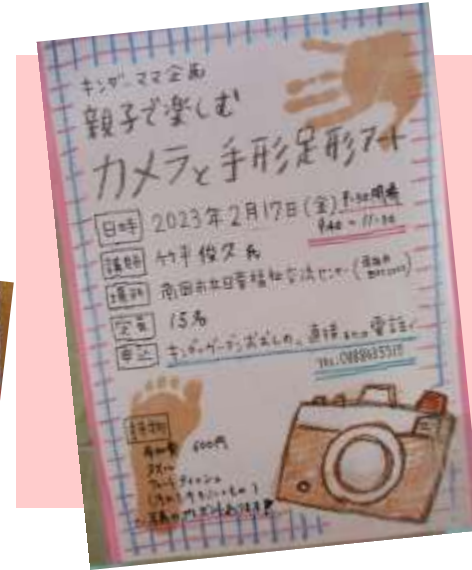 キンダーママ企画
親子で楽しむ
カメラと手形足形アート
日時 2023年2月17日(金) 9:30開場
9:40~11:30
講師 竹平俊久氏
場所 南国市立日章福祉交流センター
定員 15名
申込 キンダーガーデンおおしのへ直接または電話で
TEL:0888635515
持物
参加費 600円
タオル
ウェットティッシュ